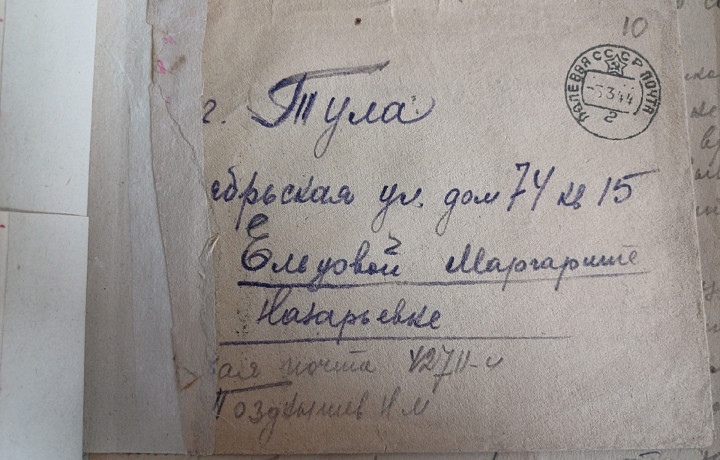 10
ПОЛЕВАЯ ПОЧТА СССР
-5.3.44
2
г. Тула
ебрьская ул. дом 74 кв 15
Ельцовой Маргарите
Назарьевне
вая почта 42711-ч
Позднышев Н М